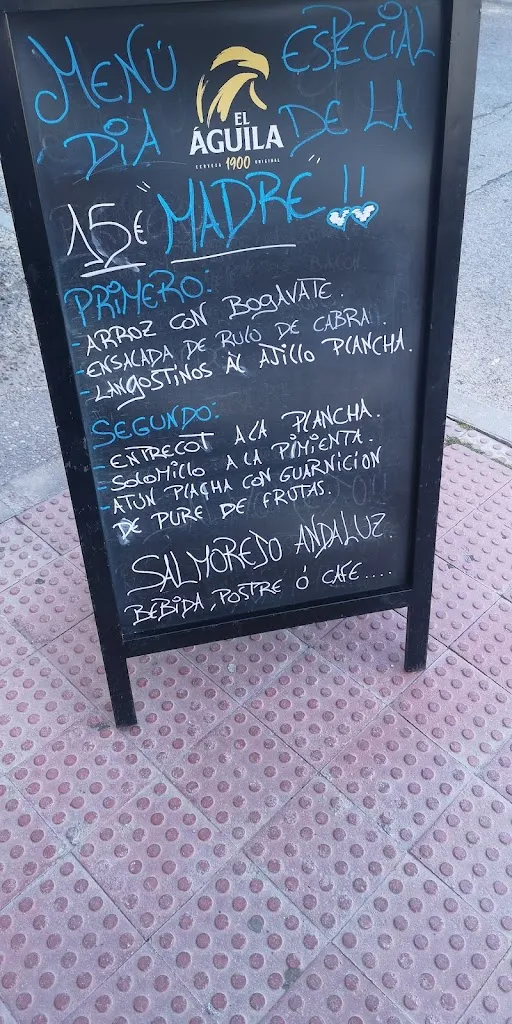 MENÚ ESPECIAL
DIA DE LA
EL
ÁGUILA
CERVEZA 1900 ORIGINAL
15€ "MADRE"!!
PRIMERO:
- ARROZ CON BOGAVATE.
- ENSALADA DE RULO DE CABRA.
- LANGOSTINOS AL AJILLO PLANCHA.
SEGUNDO:
- ENTRECOT A LA PLANCHA.
- SOLOMILLO A LA PIMIENTA.
- ATÚN PLACHA CON GUARNICION
DE PURE DE FRUTAS.
SALMOREJO ANDALUZ.
BEBIDA, POSTRE Ó CAFE....